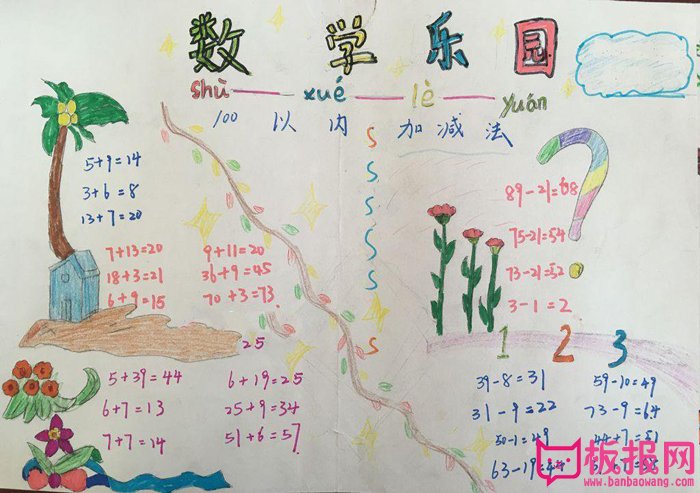 数学乐园
shù xué lè yuán
100以内加减法
5+9=14
3+6=8
13+7=20
7+13=20
18+3=21
6+9=15
9+11=20
36+9=45
70+3=73
25
5+39=44
6+7=13
7+7=14
6+19=25
25+9=34
51+6=57
S
S
S
S
S
S
S
89-21=68
75-21=54
73-21=52
3-1=2
1 2 3
39-8=31
31-9=22
50-1=49
63-19=44
59-10=49
73-9=64
44+7=51
板报网
www.banbaowang.com